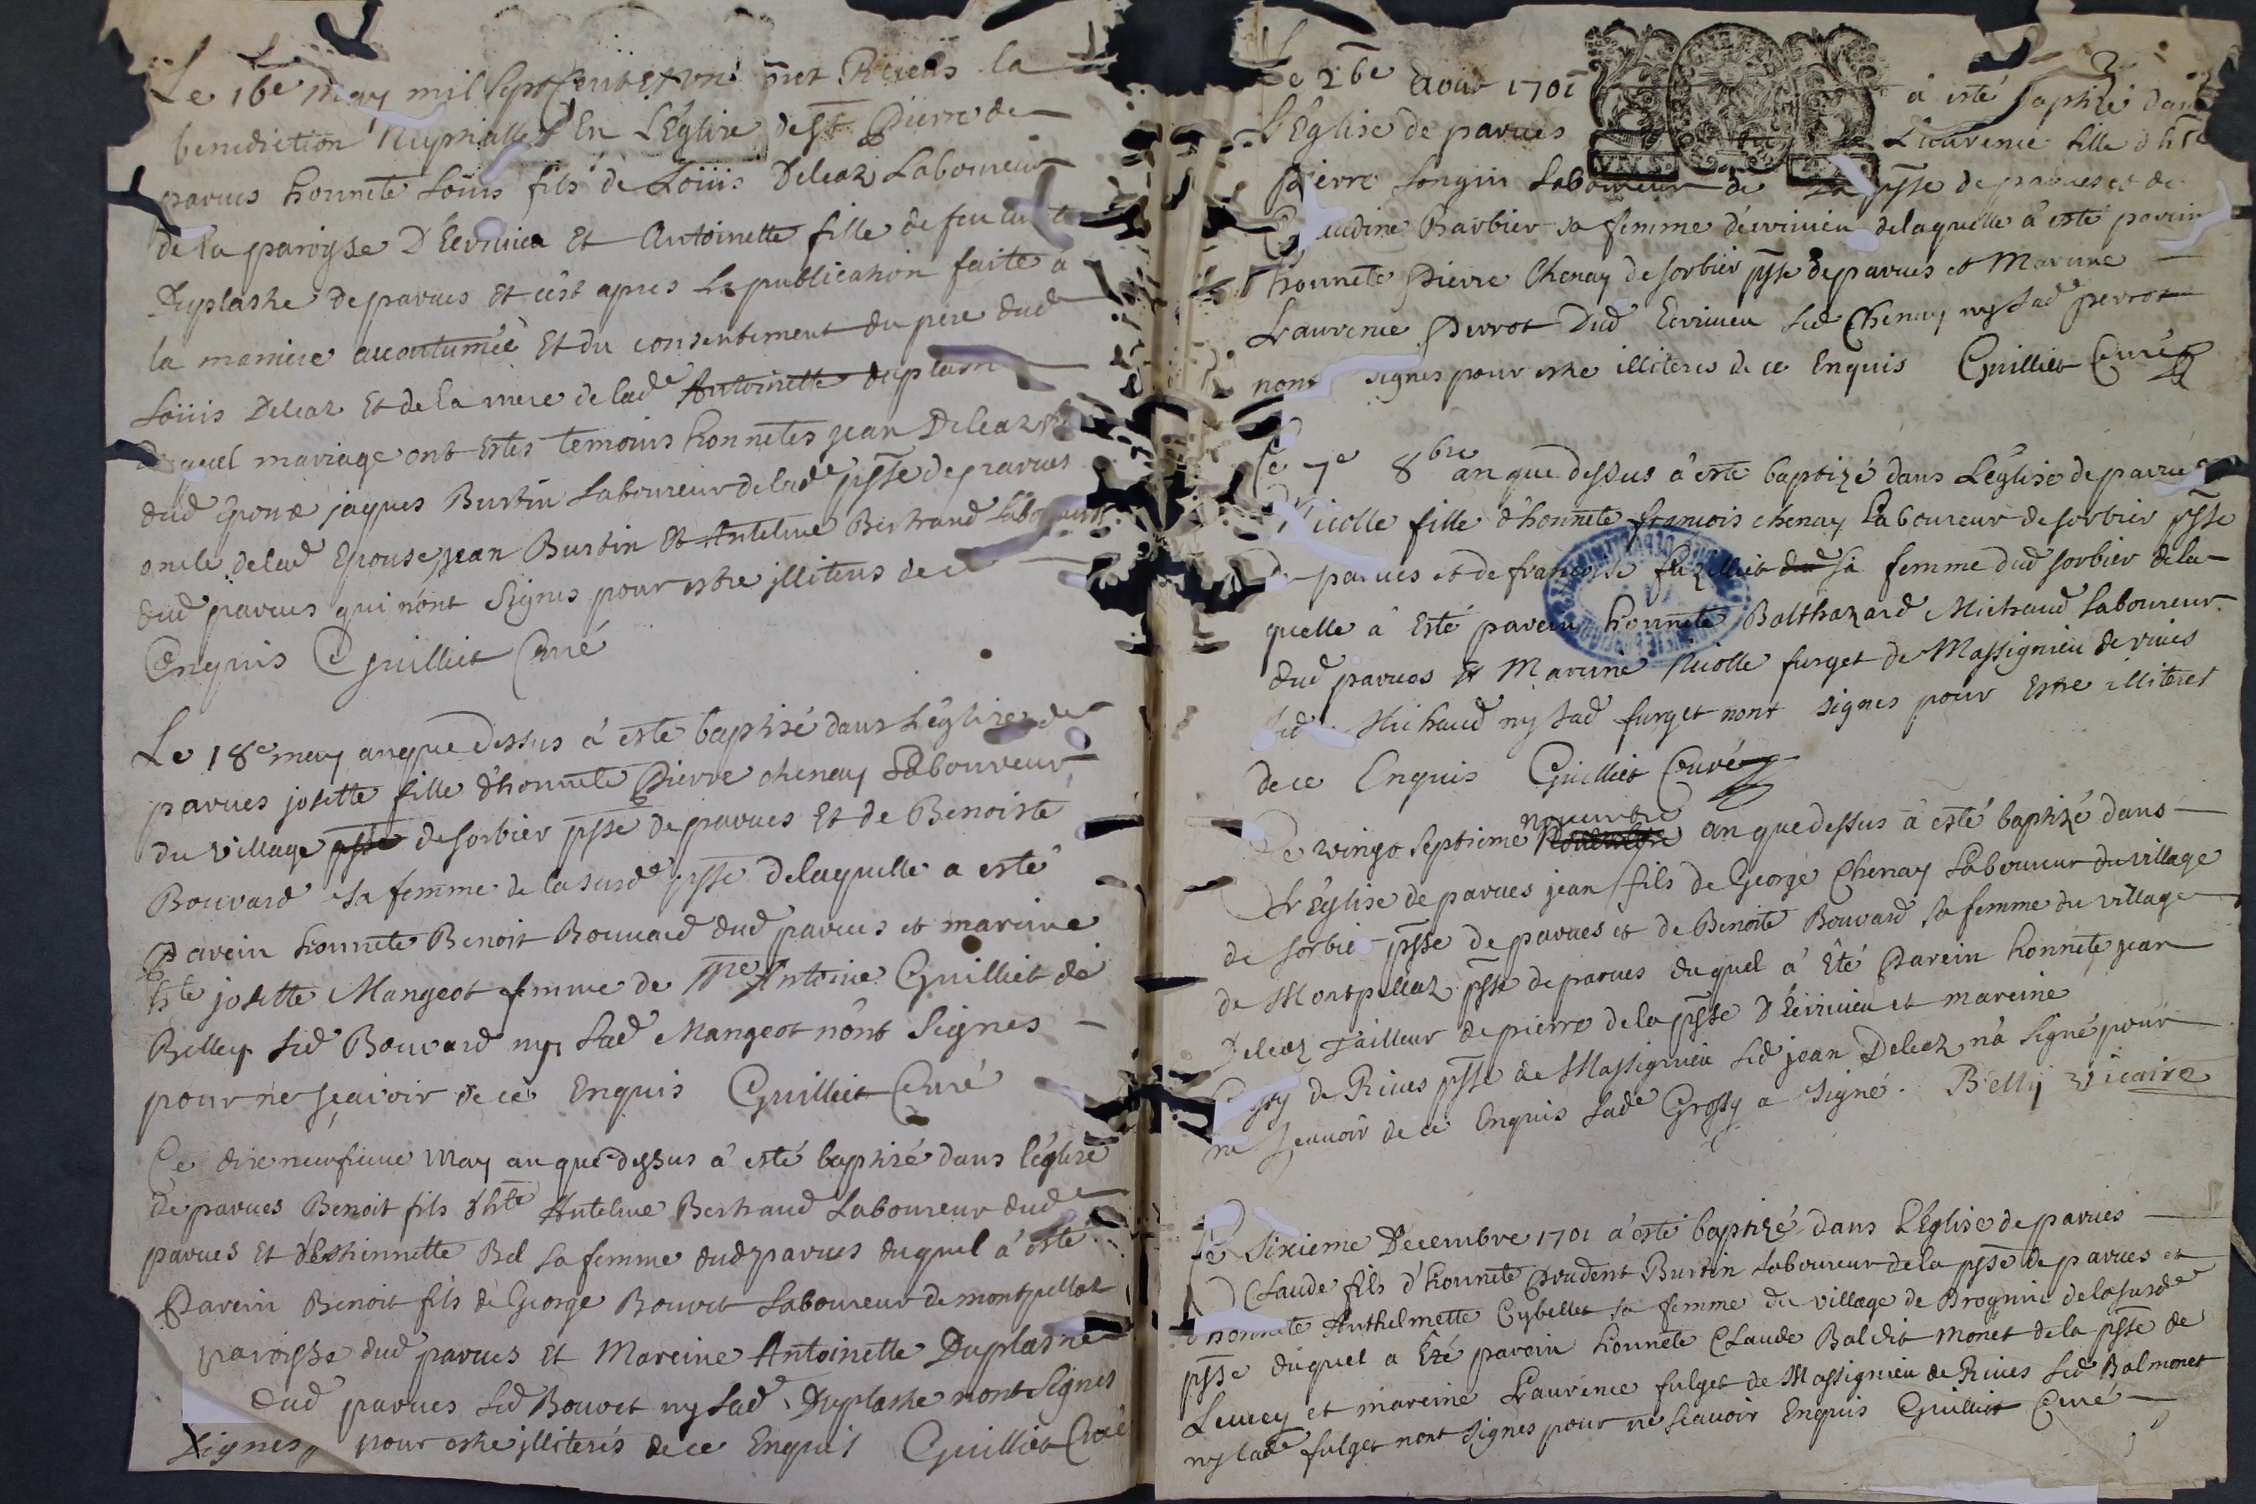 Le 16e may mil sept cent et un ont Receus la
benediction Nuptialle En L'Eglise de St Pierre de
parues honnete Loüis fils de Loüis Deleaz Laboureur
de la paroisse D'Ecrivieu Et Antoinette fille de feu
Duplastre de parues Et c'est apres La publication faite a
la maniere accoutumée Et du consentement du pere dud
Loüis Deleaz Et de la mere de lade Antoinette duplastre
duquel mariage ont Estes temoins honnetes jean Deleaz
dud Epoux jaques Burtin Laboureur de lade psse de parues
oncle de lad Epouse, jean Burtin Et Antelme Bertrand Laboureurs
dud parues qui n'ont Signes pour estre illiteres de ce
Enquis Guilliet Curé
Le 18e may an que dessus à esté baptisé dans L'église de
parues josette fille d'honnete Pierre chenay Laboureur
du village psse de sorbier psse de parues Et de Benoiste
Bouvard sa femme de la susde psse de laquelle a esté
Parein honnete Benoit Bouvard dud parues et mareine
hte josette Mangeot femme de Mre Antoine Guilliet de
Belley Led Bouvard ny Lad Mangeot n'ont Signes
pour ne sçavoir de ce Enquis Guilliet Curé
Le dixneufieme May an que dessus à esté baptisé dans l'église
de parues Benoit fils d'hte Antelme Bertrand Laboureur dud
parues Et d'Estiennette Bel sa femme dud parues duquel à esté
Parein Benoit fils de George Bouvet Laboureur de montpellaz
paroisse dud parues Et Mareine Antoinette Duplastre
dud parues Led Bouvet ny Lad Duplastre n'ont Signes
Signes pour estre illiterés de ce Enquis Guilliet Curé
2
Le 26e Aout 1701 à esté baptizé dans
L'Eglise de parues Laurence fille d'hte
Pierre Longin Laboureur de La psse de parues et de
Claudine Barbier sa femme d'ecrivieu de laquelle à esté parein
honnete Pierre Chenay de sorbier psse de parues et Mareine
Laurence Perrot Dud Ecrivieu Led Chenay ny Lade perrot
nont signes pour estre illiteres de ce Enquis Guilliet Curé
Le 7e 8bre an que dessus à esté baptizé dans L'église de parues
Nicolle fille d'honnete francois chenay Laboureur de sorbier psse
de parues et de francoise fuzilliet dud sa femme dud sorbier de la
quelle à Esté parein honnete Balthazard Michaud Laboureur
dud parues Et Mareine Nicolle furget de Massignieu de rives
Led Michaud ny Lad furget nont signes pour Estre illiteres
de ce Enquis Guilliet Curé
novembre
Le vingt septieme an que dessus à esté baptizé dans
L'Eglise de parues jean fils de George Chenay Laboureur du village
de sorbier psse de parues et de Benoite Bouvard sa femme du village
de Montpellaz psse de parues duquel à Eté Parein honnete jean
Deleaz Tailleur de pierre de la psse D'Ecrivieu et mareine
de Rives psse de Massignieu Led jean Deleaz n'a signé pour
ne sçavoir de ce Enquis Lade Grossy a Signé. Belly vicaire
Le Sixieme Decembre 1701 à esté baptizé dans L'Eglise de parues
Claude fils d'honnete Prudent Burtin Laboureur de la psse de parues et
d'honnete Anthelmette Cybellet sa femme du village de Brognin de la susde
psse duquel a Eté parein honnete Claude Baldit Monet de la psse de
Lucey et mareine Laurence fulget de Massignieu de Rives Led Balmonet
ny lade fulget nont signes pour ne sçavoir Enquis Guilliet Curé